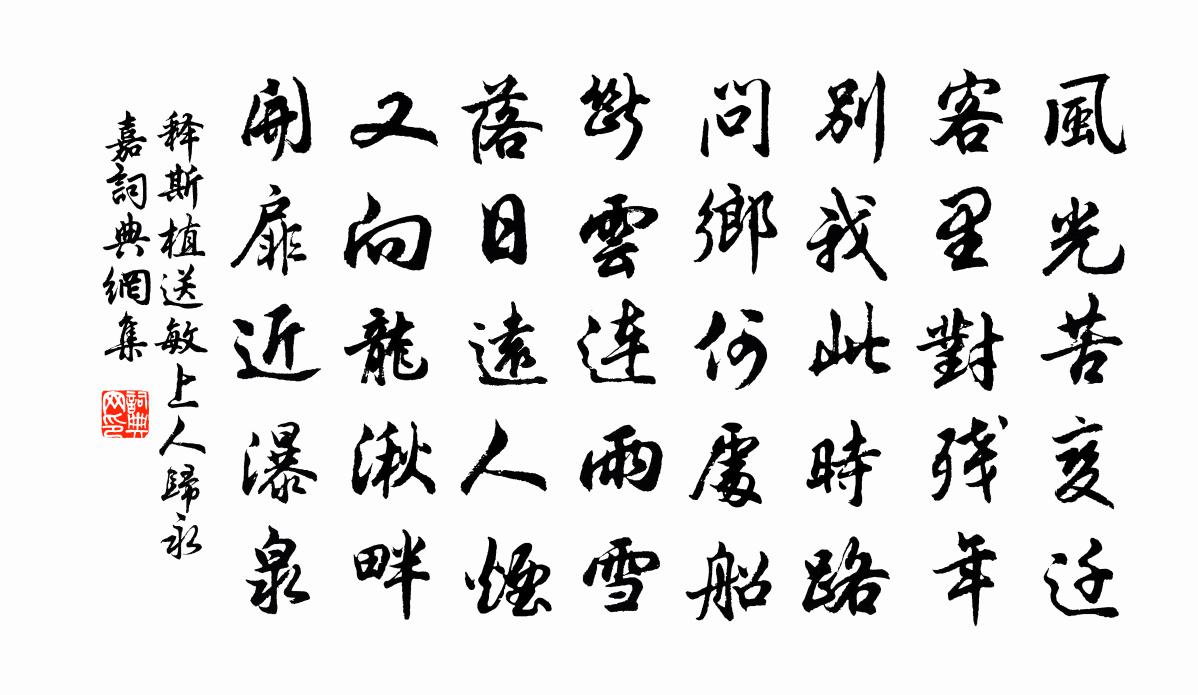 風光苦变迁
客里對残年
別我此時路
問鄉何處船
斷雲連雨雪
落日遠人煙
又向龍湫畔
開扉近瀑泉
释斯植送敏上人歸永
嘉詞典網集
詞典
网印